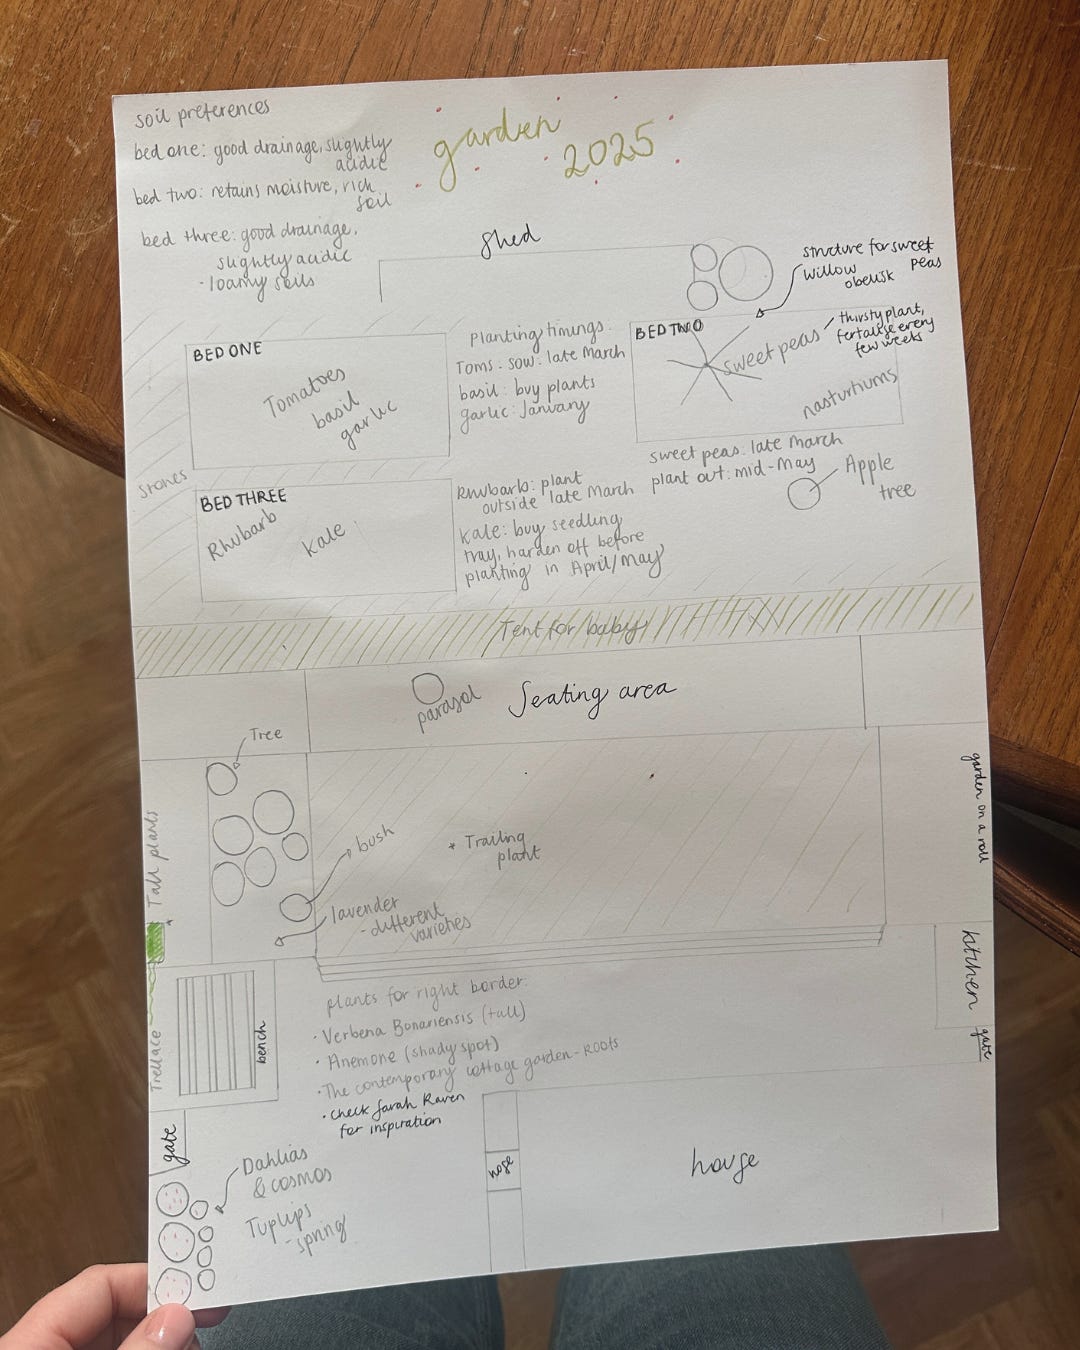 soil preferences
bed one: good drainage, slightly
acidic
bed two: retains moisture, rich
soil
bed three: good drainage,
slightly acidic
- loamy soils
garden
2025
shed
structure for sweet
peas
willow
obelisk
BED ONE
Tomatoes
basil
garlic
Planting timings:
Toms: sow: late March
basil: buy plants
garlic: January
BED TWO
sweet peas
thirsty plant,
fertalise every
few weeks
nasturtiums
sweet peas: late March
plant out: mid-May
Apple
tree
stones
BED THREE
Rhubarb
Kale
Rhubarb: plant
outside late March
Kale: buy seedling
tray, harden off before
planting in April/May
Tent for baby
parasol
Seating area
Tree
Tall plants
bush
* Trailing
plant
lavender
- different
varieties
garden on a roll
kitchen
gate
Trellace
bench
plants for right border:
· Verbena Bonariensis (tall)
· Anemone (shady spot)
· The contemporary cottage garden - Roots
· check Sarah Raven
for inspiration
gate
Dahlias
& cosmos
Tuplips
- spring
hose
house